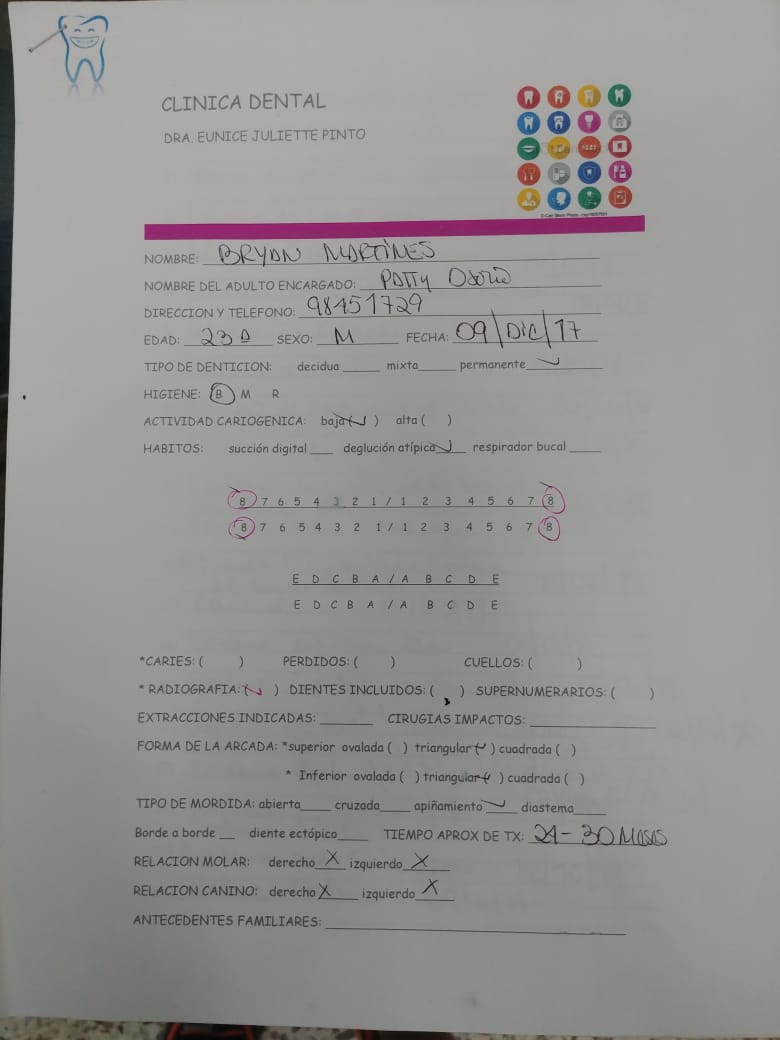 CLINICA DENTAL
DRA. EUNICE JULIETTE PINTO
© Can Stock Photo
NOMBRE: BRYAN MARTINES
NOMBRE DEL ADULTO ENCARGADO: PATTY Osorio
DIRECCION Y TELEFONO: 98451729
EDAD: 23 A SEXO: M FECHA: 09/Dic/17
TIPO DE DENTICION: decidua ____ mixta ____ permanente ✓
HIGIENE: B M R
ACTIVIDAD CARIOGENICA: baja (✓) alta ( )
HABITOS: succión digital ____ deglución atípica ✓ respirador bucal ____
8 7 6 5 4 3 2 1 / 1 2 3 4 5 6 7 8
8 7 6 5 4 3 2 1 / 1 2 3 4 5 6 7 8
E D C B A / A B C D E
E D C B A / A B C D E
*CARIES: ( ) PERDIDOS: ( ) CUELLOS: ( )
* RADIOGRAFIA: (✓) DIENTES INCLUIDOS: ( ) SUPERNUMERARIOS: ( )
EXTRACCIONES INDICADAS: ____ CIRUGIAS IMPACTOS: ____
FORMA DE LA ARCADA: *superior ovalada ( ) triangular (✓) cuadrada ( )
* Inferior ovalada ( ) triangular (✓) cuadrada ( )
TIPO DE MORDIDA: abierta ____ cruzada ____ apiñamiento ✓ diastema ____
Borde a borde __ diente ectópico ____ TIEMPO APROX DE TX: 24-30 Meses
RELACION MOLAR: derecho X izquierdo X
RELACION CANINO: derecho X izquierdo X
ANTECEDENTES FAMILIARES: ____